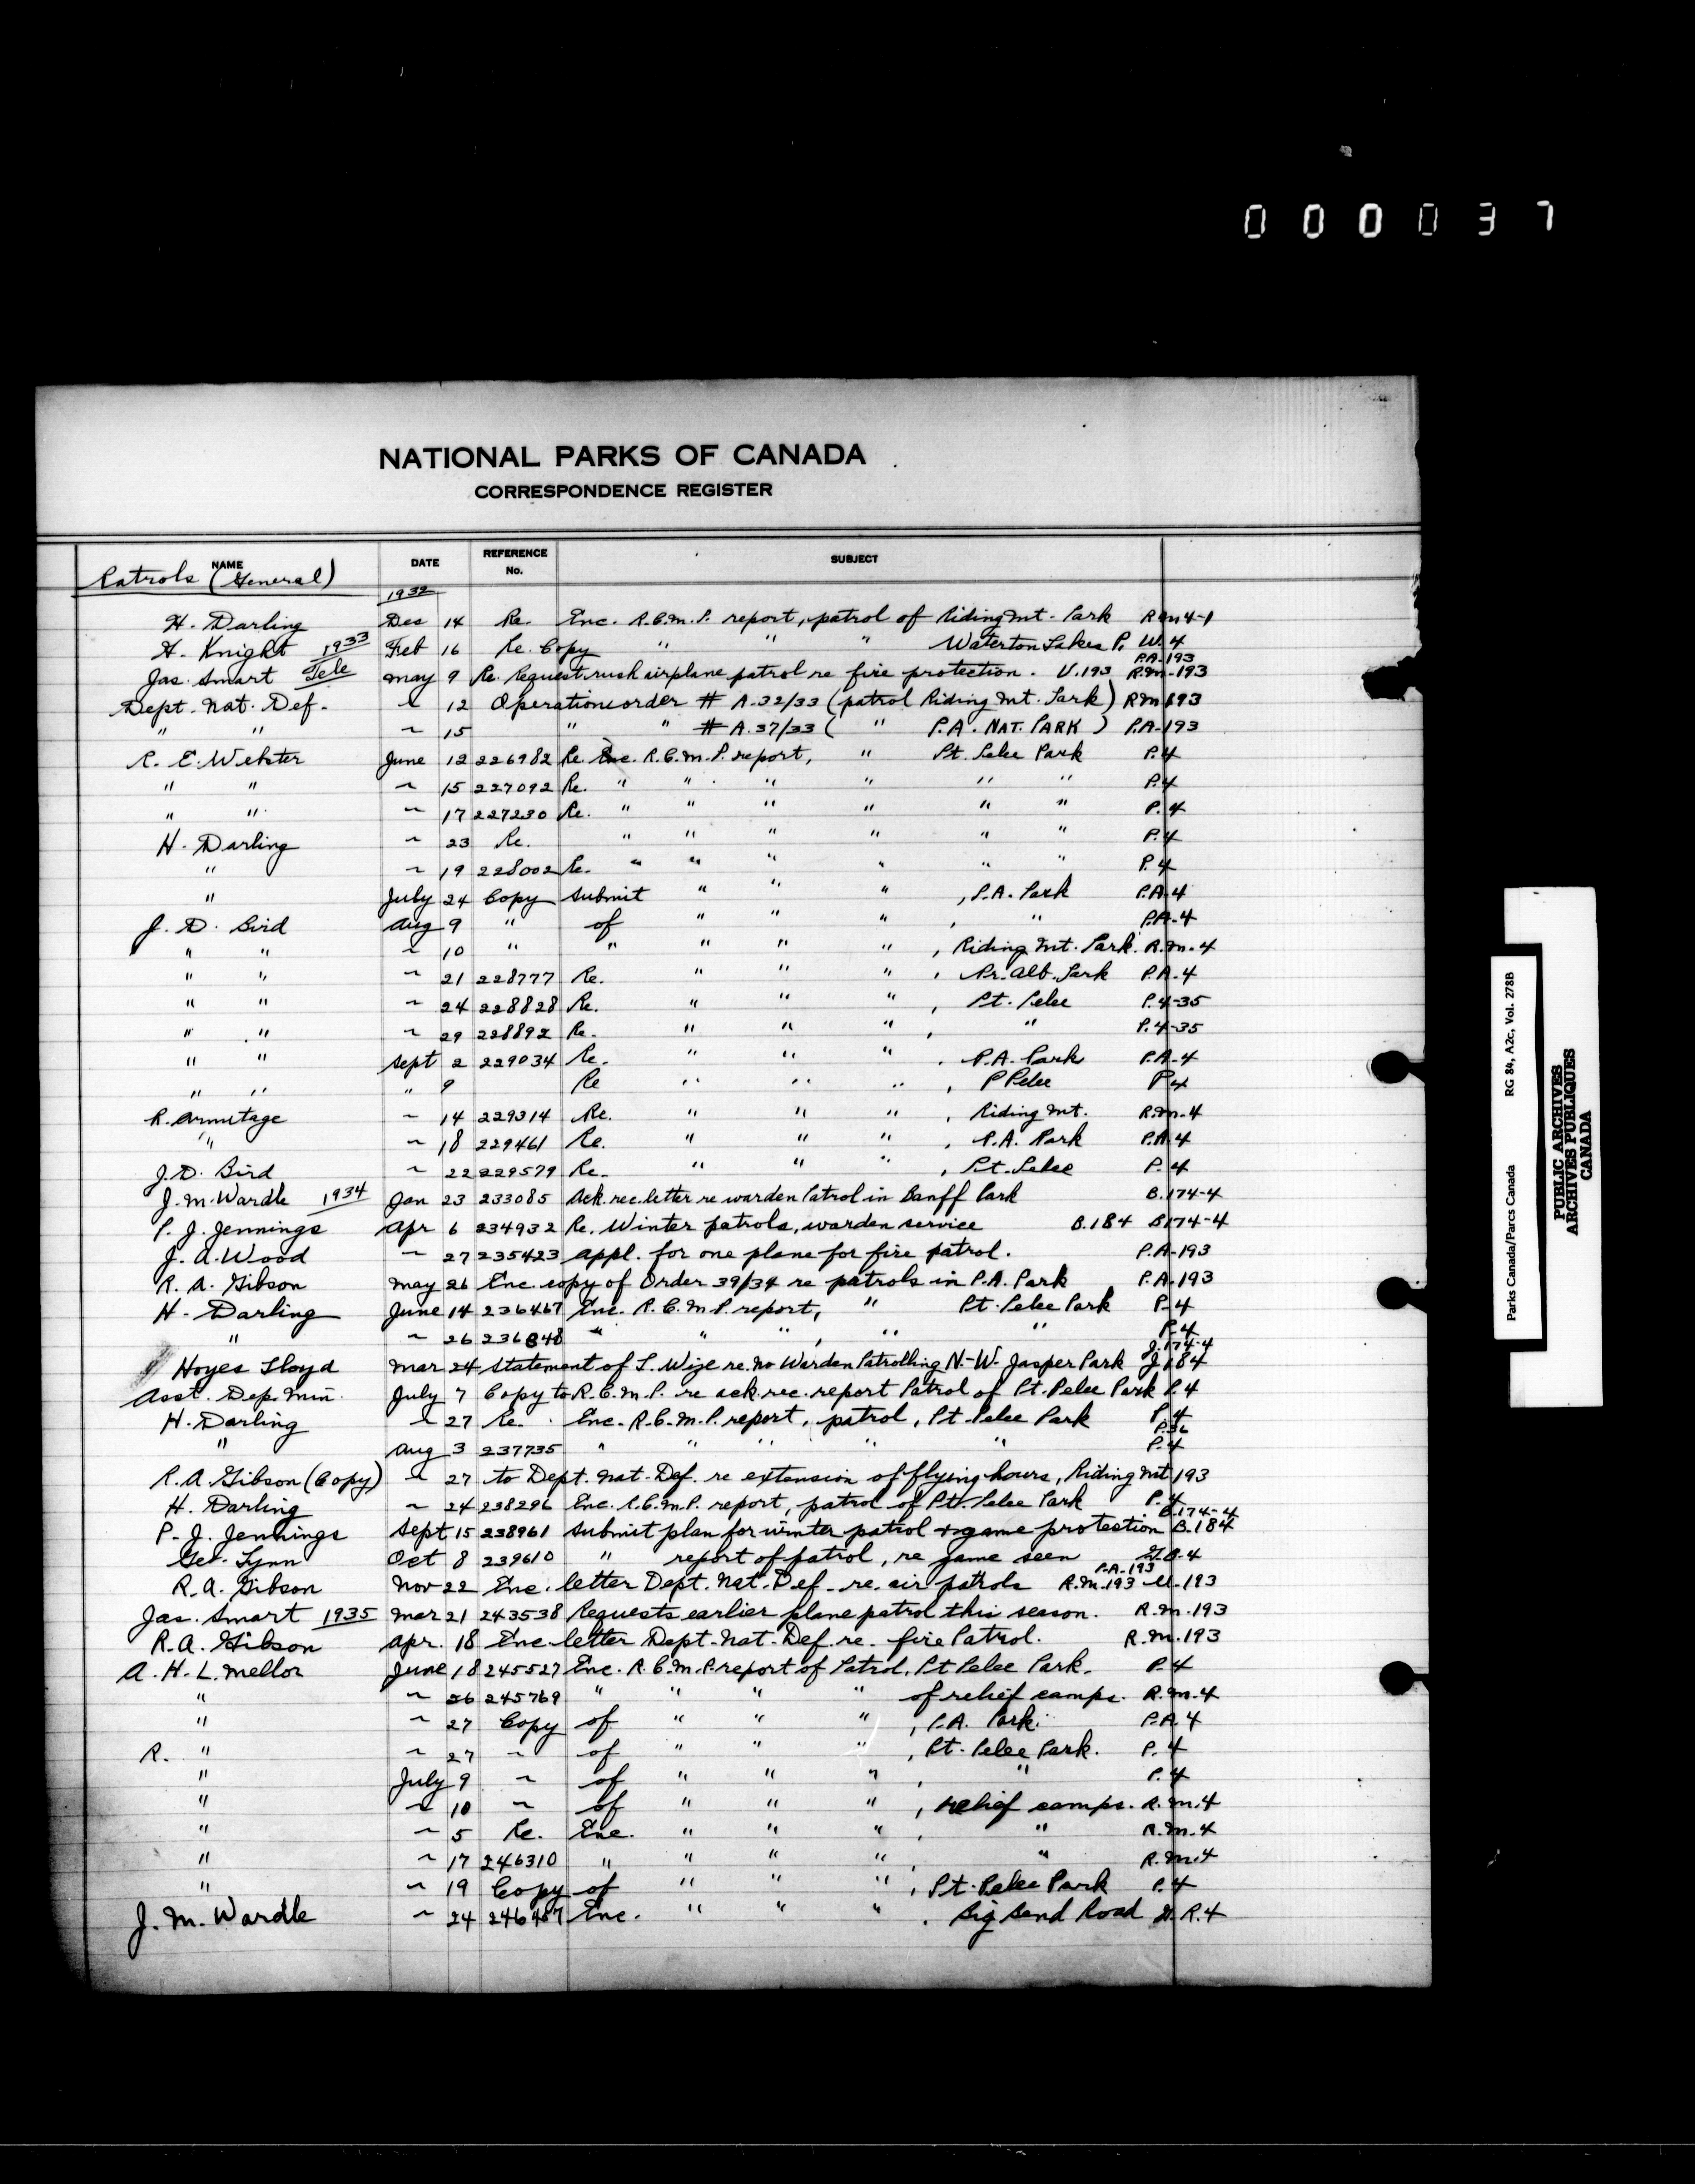 000037
NATIONAL PARKS OF CANADA
CORRESPONDENCE REGISTER
NAME DATE REFERENCE No. SUBJECT
Patrols (General)
1932
H. Darling Dec 14 Re. Enc. R.C.M.P. report, patrol of Riding Mt. Park R.M 4-1
H. Knight 1933 Feb 16 Re. Copy " " " Waterton Lakes P. W. 4
P.A. 193
Jas. Smart Tele May 9 Re. Request rush airplane patrol re fire protection. U.193 R.M.193
Dept. Nat. Def. ~ 12 Operation order # A.32/33 (patrol Riding Mt. Park) R.M 193
" " ~ 15 " " # A.37/33 ( " P.A. NAT. PARK ) P.A.193
R. E. Webster June 12 226982 Re. Enc. R.C.M.P. report, " Pt. Pelee Park P.4
" " ~ 15 227092 Re. " " " " " " P.4
" " ~ 17 227230 Re. " " " " " " P.4
H. Darling ~ 23 Re. " " " " " " P.4
" ~ 19 228002 Re. " " " " " " P.4
" July 24 Copy submit " " " , P.A. Park P.A.4
J. D. Bird Aug 9 " of " " " , " P.A.4
" " ~ 10 " " " " " , Riding Mt. Park. R.M.4
" " ~ 21 228777 Re. " " " , Pr. Alb. Park P.A.4
" " ~ 24 228828 Re. " " " , Pt. Pelee P.4-35
" " ~ 29 228892 Re. " " " , " P.4-35
" " Sept 2 229034 Re. " " " , P.A. Park P.A.4
" " " 9 Re " " " , P Pelee P4
R. Armitage ~ 14 229314 Re. " " " , Riding Mt. R.M.4
" ~ 18 229461 Re. " " " , P.A. Park P.A 4
J.D. Bird ~ 22 229579 Re. " " " , Pt. Pelee P.4
J.M. Wardle 1934 Jan 23 233085 Ack. rec. letter re warden Patrol in Banff Park B.174-4
P. J. Jennings Apr 6 234932 Re. Winter patrols, warden service B.184 B174-4
J. A. Wood ~ 27 235423 Appl. for one plane for fire patrol. P.A.193
R. A. Gibson May 26 Enc. copy of Order 39/34 re patrols in P.A. Park P.A.193
H. Darling June 14 236467 Enc. R.C.M.P. report, " Pt. Pelee Park P.4
" ~ 26 236848 " " " , " " P.4
J.174-4
Hoyes Lloyd Mar 24 Statement of L. Wize re. no Warden Patrolling N.-W. Jasper Park J184
Asst. Dep. Min. July 7 Copy to R.C.M.P. re ack. rec. report Patrol of Pt. Pelee Park P.4
H. Darling ~ 27 Re. Enc. R.C.M.P. report, patrol, Pt. Pelee Park P.4
P.36
" Aug 3 237735 " " " " " P.4
R.A. Gibson (Copy) ~ 27 to Dept. Nat. Def. re extension of flying hours, Riding Mt 193
H. Darling ~ 24 238296 Enc. R.C.M.P. report, patrol of Pt. Pelee Park P.4
B.174-4
P. J. Jennings Sept 15 238961 submit plan for winter patrol + game protection B.184
Geo. Lynn Oct 8 239610 " report of patrol, re game seen G.B.4
P.A.193
R.A. Gibson Nov 22 Enc. letter Dept. Nat. Def. re. air patrols R.M.193 U.193
Jas. Smart 1935 Mar 21 243538 Requests earlier plane patrol this season. R.M.193
R.A. Gibson Apr. 18 Enc letter Dept. Nat. Def. re. fire Patrol. R.M.193
A. H. L. Mellor June 18 245527 Enc. R.C.M.P. report of Patrol, Pt Pelee Park. P.4
" ~ 26 245769 " " " " of relief camps. R.M.4
" ~ 27 Copy of " " " , P.A. Park. P.A.4
R. " ~ 27 ~ of " " " , Pt. Pelee Park. P.4
" July 9 ~ of " " " , " P.4
" ~ 10 ~ of " " " , relief camps. R.M.4
" ~ 5 Re. Enc. " " " , " R.M.4
" ~ 17 246310 " " " " , " R.M.4
" ~ 19 Copy of " " " , Pt. Pelee Park P.4
J. M. Wardle ~ 24 246457 Enc. " " " , Big Bend Road R.4
Parks Canada/Parcs Canada RG 84, A2c, Vol. 278B
PUBLIC ARCHIVES
ARCHIVES PUBLIQUES
CANADA